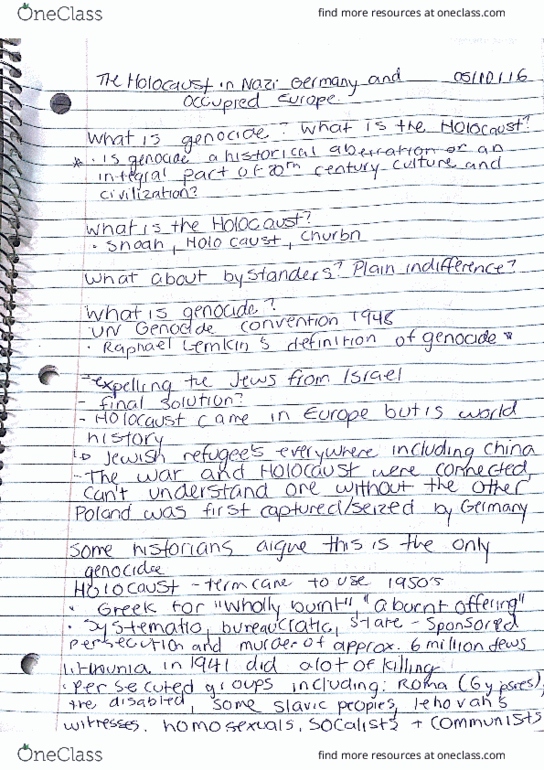 OneClass
find more resources at oneclass.com
The Holocaust in Nazi Germany and 05/10/16
Occupied Europe.
What is genocide? What is the Holocaust?
* • Is genocide a historical aberration or an
integral part of 20th century culture and
civilization?
What is the Holocaust?
• Shoah, Holocaust, Churbn
What about bystanders? Plain indifference?
What is genocide?
UN Genocide convention 1948
• Raphael Lemkin's definition of genocide *
- expelling the Jews from Israel
- final solution?
- Holocaust came in Europe but is world
history
Jewish refugee's everywhere including China
- The war and Holocaust were connected
can't understand one without the other
Poland was first captured/seized by Germany
some historians argue this is the only
genocide
Holocaust - term came to use 1950s
• Greek for "wholly burnt", "a burnt offering"
• Systematic, bureaucratic, state-sponsored
persecution and murder of approx. 6 million Jews
Lithuania in 1941 did alot of killing
• Persecuted groups including: Roma (Gypsies),
the disabled, some slavic peoples, Jehovah's
witnesses, homosexuals, socalists + communists
OneClass
find more resources at oneclass.com